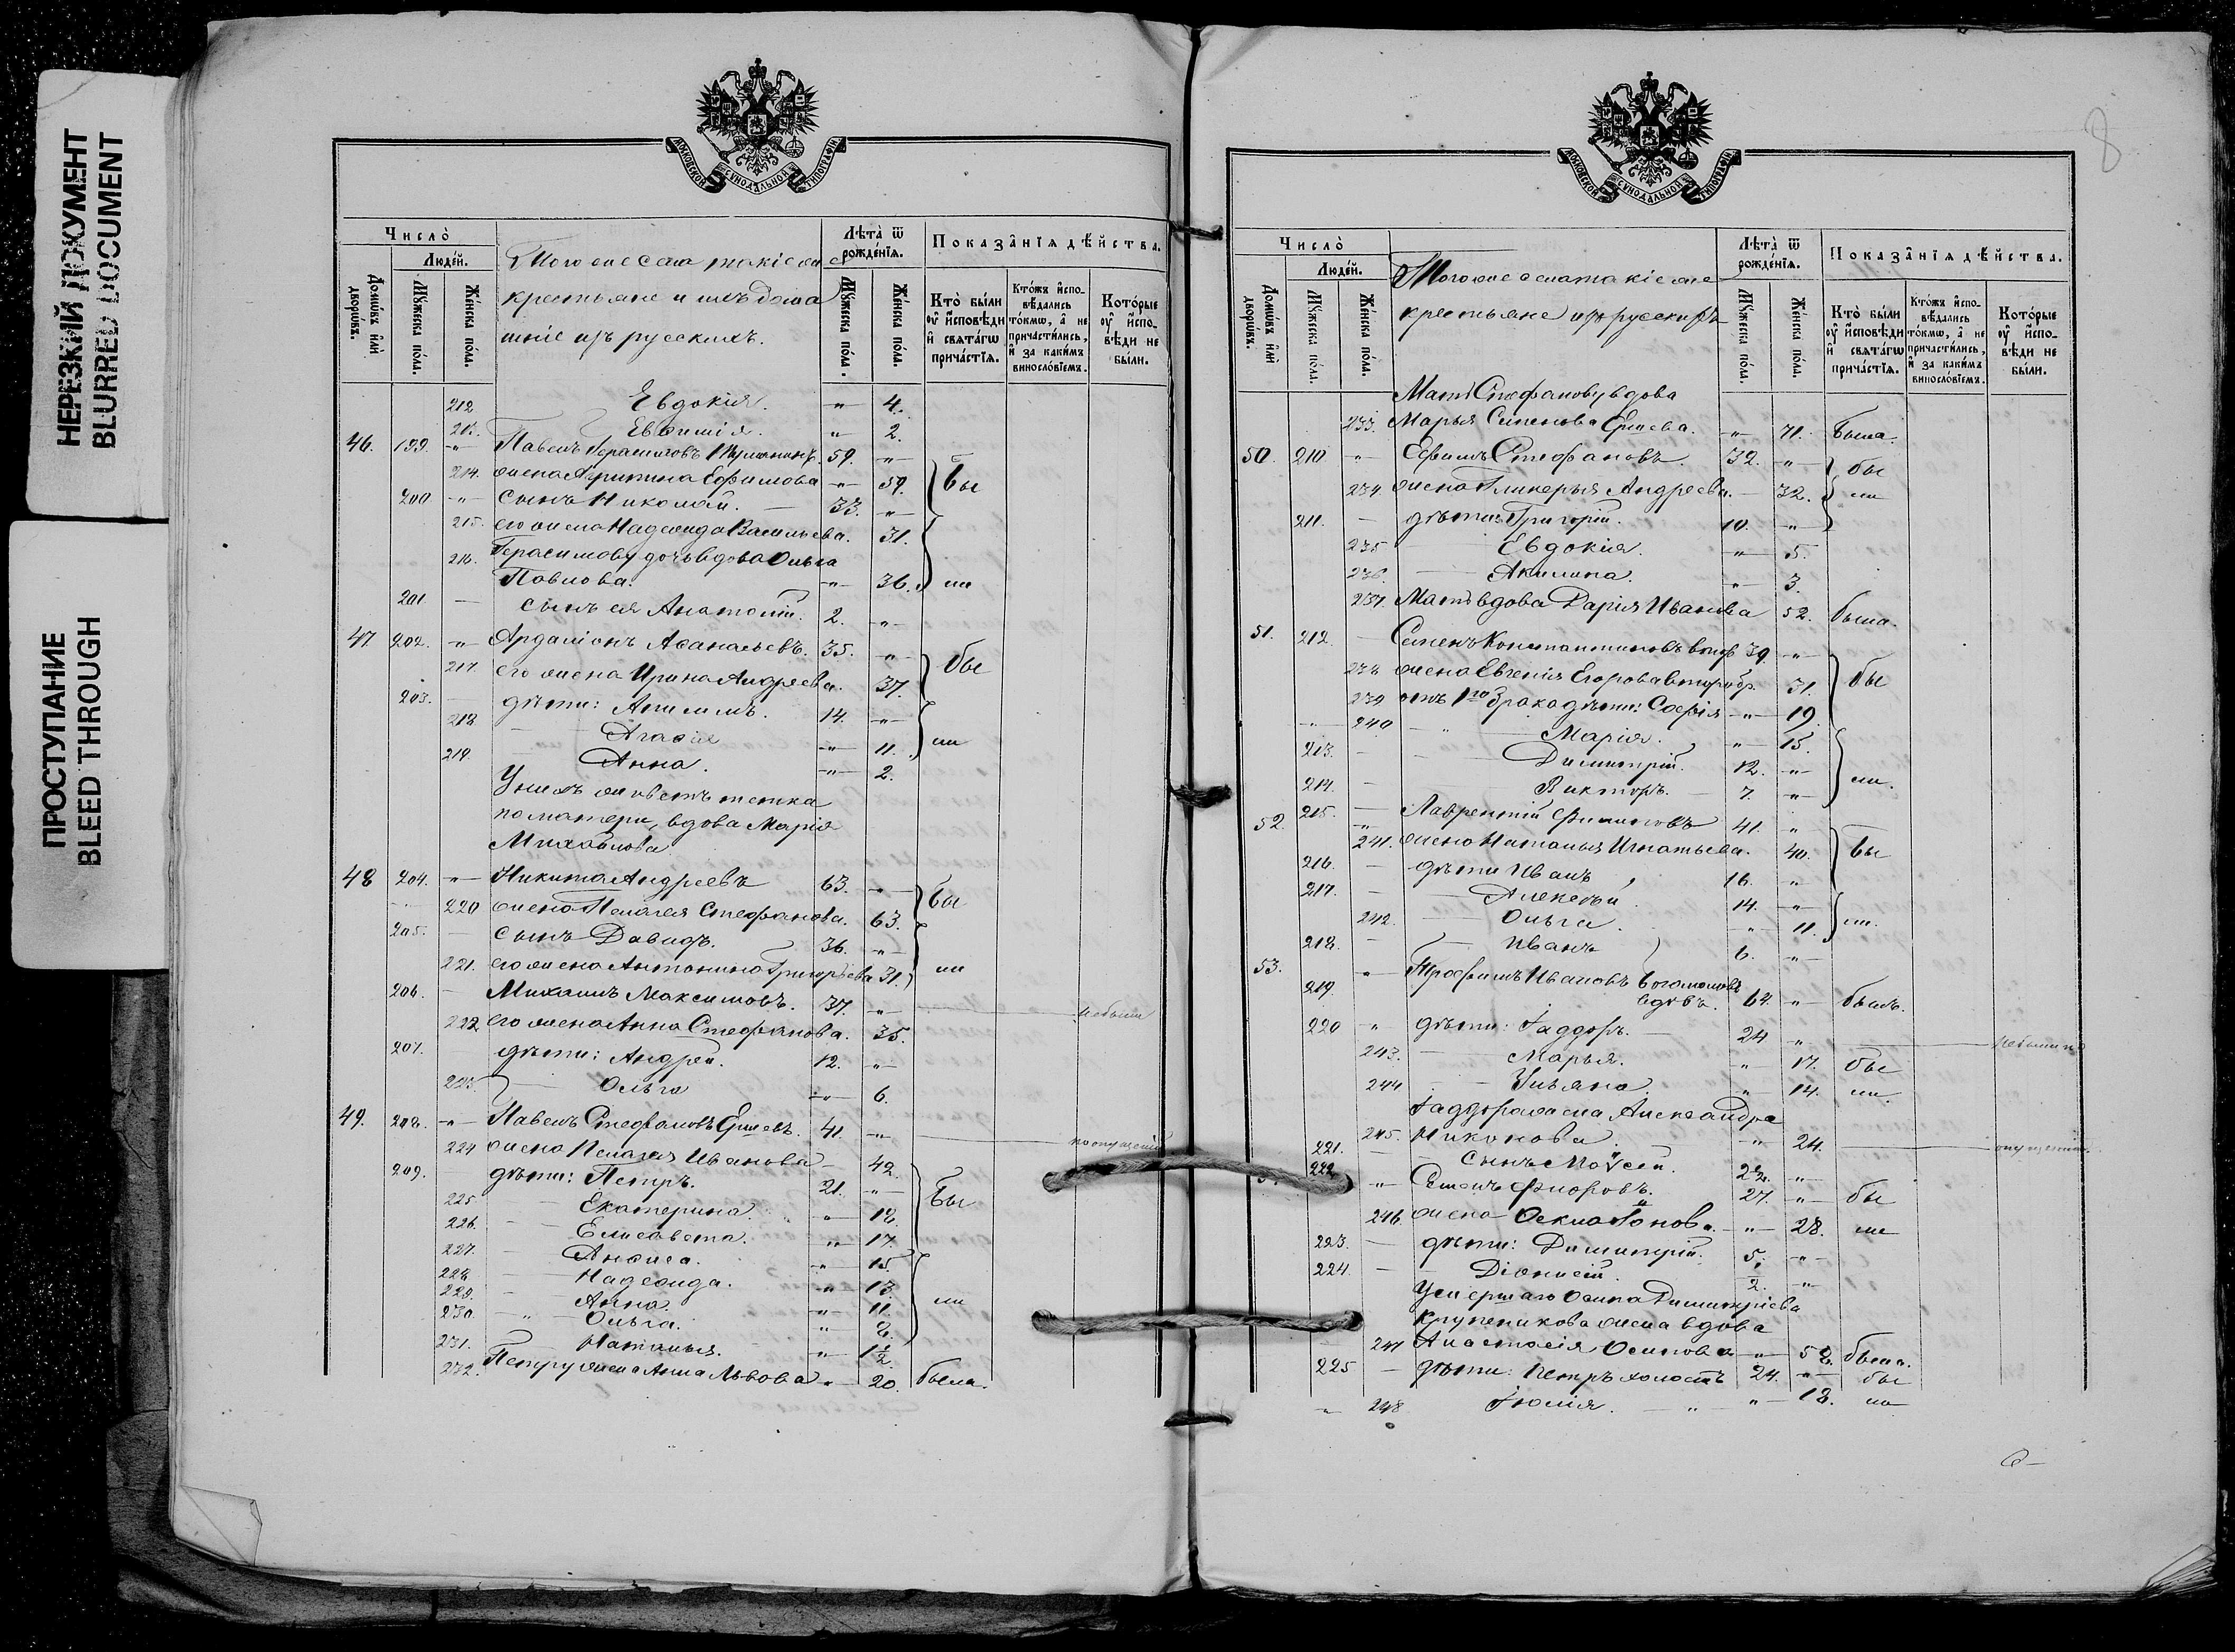 НЕРЕЗКИЙ ДОКУМЕНТ
BLURRED DOCUMENT
ПРОСТУПАНИЕ
BLEED THROUGH
МОСКОВСКОЙ СѴНОДАЛЬНОЙ ТИПОГРАФІИ
Число̀
Людей.
Домѡвъ или дворѡвъ.
Мꙋжеска пола.
Женска пола.
Того же села такіе же
крестьяне и ихъ дома
шніе изъ русскихъ.
Лѣта ѿ рожденїѧ.
Мꙋжеска пола.
Женска пола.
Показанїѧ дѣйства.
Кто были оу исповѣди и свѧтагѡ причастїѧ.
Кто жъ исповѣдались токмѡ, а не причастились, и за какимъ винословїемъ.
Которые оу исповѣди не были.
212. Евдокія. " 4.
213. Евѳимія. " 2.
46. 199. " Павелъ Герасимовъ 59. "
214. жена Ефимова " 59. бы
200 " сынъ Николай. 33. "
215. его жена Надежда Васильева. 31.
216. Герасимову дочь вдова Ольга
Павлова. " 36. ли
201 сынъ ея Анатолій. 2. "
47 202. " Ардаліонъ Аѳанасьевъ. 35. "
217. его жена Ирина Андреева. 37. бы
203. дѣти: 14. "
218. Агаѳія " 11. ли
219. Анна. " 2.
У нихъ живетъ тетка
по матери, вдова Марія
Михайлова
48 204. " Никита Андреевъ 63. " бы
220 жена Пелагея Стефанова. 63.
205. сынъ Давидъ. 36. "
221. его жена Антонина Григорьева 31. ли
206. Михаилъ Максимовъ. 37. " не были
222 его жена Анна Стефанова. 35.
207. дѣти: Андрей. 12. "
223 Ольга " 6.
49. 208. " Павелъ Стефановъ Ершевъ. 41. " по опущенію
224 жена Пелагея Иванова 42.
209. дѣти: Петръ. 21. " бы
225 Екатерина. " 18.
226. Елисавета. " 17.
227. Анѳиса. " 15.
228 Надежда. " 13. ли
229. Анна. " 11.
230. " Ольга. " 8.
231. Наталья. " 1½.
232. Петру жена Анна Львова " 20. была.
8
МОСКОВСКОЙ СѴНОДАЛЬНОЙ ТИПОГРАФІИ
Число̀
Людей.
Домѡвъ или дворѡвъ.
Мꙋжеска пола.
Женска пола.
Того же села такіе же
крестьяне изъ русскихъ
Лѣта ѿ рожденїѧ.
Мꙋжеска пола.
Женска пола.
Показанїѧ дѣйства.
Кто были оу исповѣди и свѧтагѡ причастїѧ.
Кто жъ исповѣдались токмѡ, а не причастились, и за какимъ винословїемъ.
Которые оу исповѣди не были.
Мать Стефанову вдова
233. Марья Семенова Ершева. " 71. была.
50. 210 " Ефимъ Стефановъ. 32. " бы
234 жена Гликерья Андреева. 32. ли
211. дѣти: Григорій. 10. "
235 Евдокія. " 5.
236. Акилина. " 3.
237. Мать вдова Дарія Иванова 52. была.
51. 212 Семенъ Константиновъ 39. "
238 жена Евгенія Егорова 31. бы
239 отъ 1го брака дѣти: Софія " 19.
240 Марія. " 15.
213. Димитрій. 12. "
214. Викторъ. 7. " ли.
52. 215. Лаврентій Филиповъ 41. "
241. жена Наталья Игнатьева. 40. бы
216 дѣти Иванъ 16. "
217. Алексѣй. 14. "
242. Ольга. " 11. ли.
218. Иванъ 6. "
53. " Трофимъ Ивановъ Богомоловъ
219. вдовъ. 64. " былъ.
220 " дѣти: Ѳаддей. 24 " не были по
243. Марья. " 17. бы
244 Ульяна " 14. ли.
Ѳаддея жена Александра
245. Никонова. " 24. опущенію.
221. сынъ Моѵсей. 2½. "
222 " Семенъ Флоровъ. 27. " бы
246. жена " 28. ли
223. дѣти: Димитрій. 5. "
224. Діонисій. 2. "
Умершаго Осипа Димитріева
Крупеникова жена вдова
247 Анастасія Осипова " 58. была.
225 дѣти: Петръ холостъ 24. " бы
" 248 Іюлія. " " 18. ли